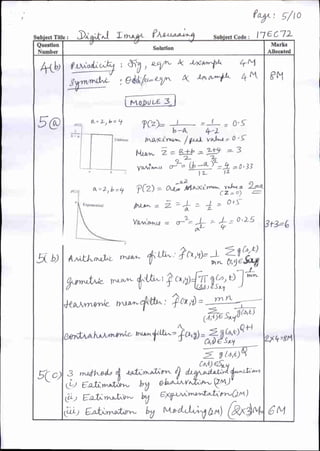 Page: 5/10
Subject Title: Digital Image Processing Subject Code: 17EC72
Question Number Solution Marks Allocated
4(b) Periodicity : fig, eqn & example 4M
Symmetric : Odd/even eqn & example 4M 8M
MODULE 3
5(a) a=2, b=4 P(z)= 1/(b-a) = 1/(4-2) = 0.5
maximum / peak value = 0.5
Uniform
Mean z̄ = (a+b)/2 = (2+4)/2 = 3
Variance σ² = (b-a)²/12 = 4/12 = 0.33
a=2, b=4 P(z) = ae^{-az} Maximum value = 2=a (z=0)
Exponential
Mean = z̄ = 1/a = 1/2 = 0.5
Variance = σ² = 1/a² = 1/4 = 0.25 3+3=6
5(b) Arithmetic mean filter: f̂(x,y)= 1/mn Σ g(s,t) (s,t)∈Sxy
Geometric mean filter: f̂(x,y)=[Π g(s,t)]^{1/mn} (s,t)∈Sxy
Harmonic mean filter: f̂(x,y) = mn / Σ 1/g(s,t) (s,t)∈Sxy
Contraharmonic mean filter = f̂(x,y) = Σ g(s,t)^{Q+1} (s,t)∈Sxy / Σ g(s,t)^Q (s,t)∈Sxy 2x4=8M
5(c) 3 methods of estimation of degradation function
(i) Estimation by observation (2M)
(ii) Estimation by Experimentation (2M)
(iii) Estimation by Modeling (2M) (2x3)M 6M